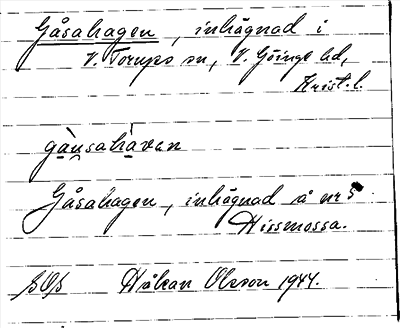 Gåsahagen, inhägnad i
V. Torups sn, V. Göinge hd,
Krist. l.
gàu̯sahàvan
Gåsahagen, inhägnad å nr 5
Hissmossa.
Håkan Olsson 1944.